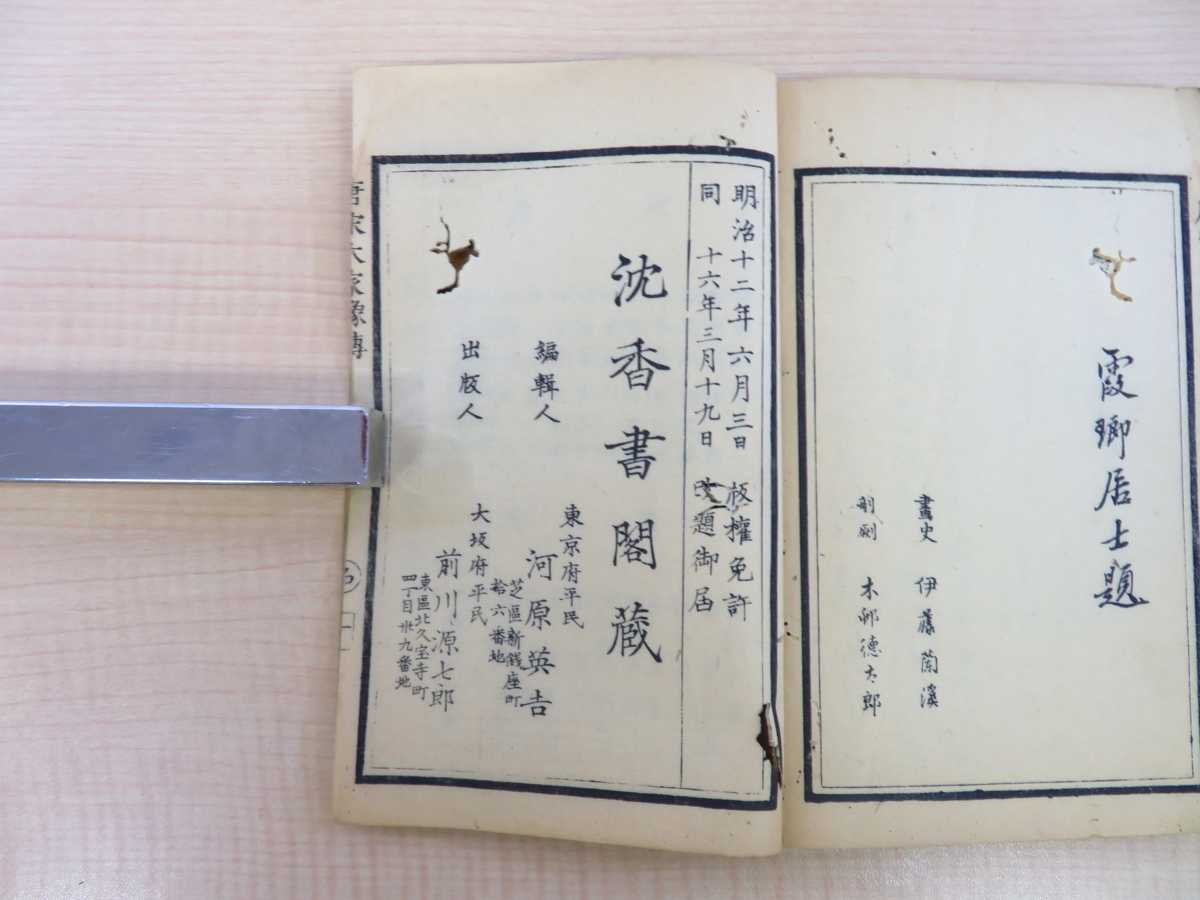 霞郷居士題
畫史 伊藤蘭溪
剞劂 木邨德太郎
明治十二年六月三日 板權免許
同 十六年三月十九日 改題御届
沈香書閣蔵
編輯人
東京府平民
河原英吉
芝區新錢座町
拾六番地
出版人
大坂府平民
前川源七郎
東區北久宝寺町
四丁目卅九番地
唐宋大家像傳